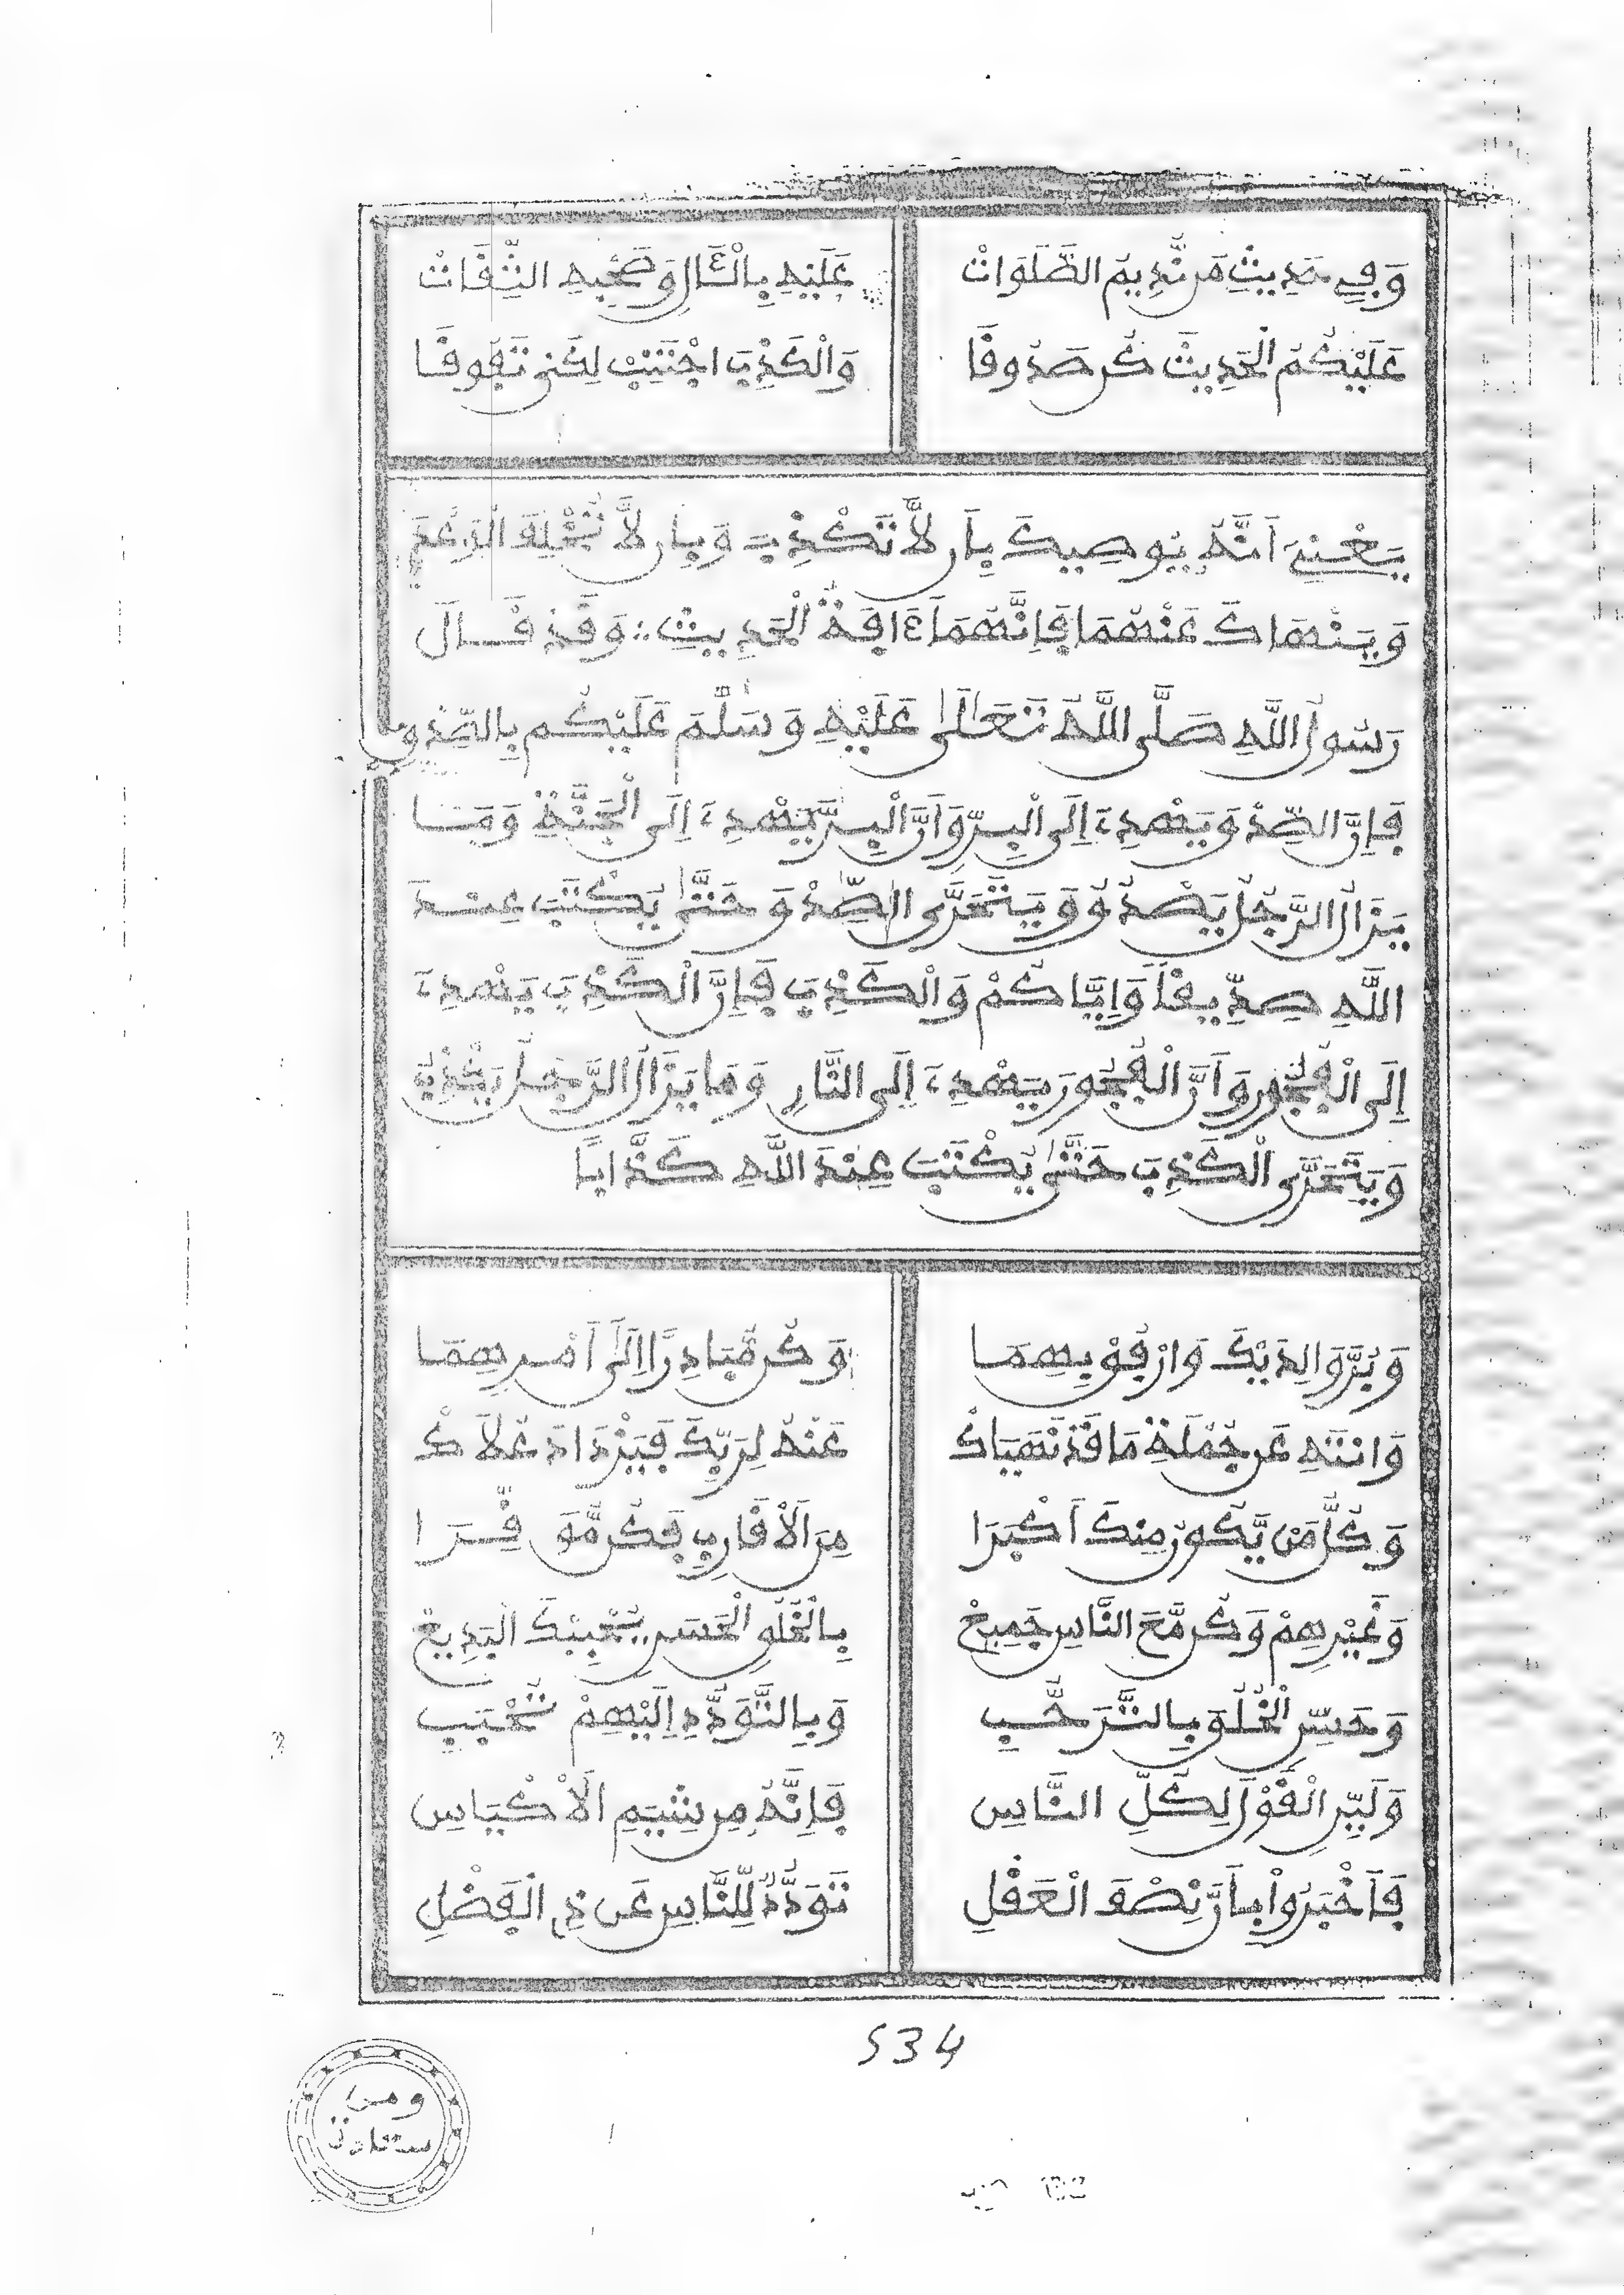 وَفِي حَدِيثِ مَن نُّدِيمُ الصَّلَوَاتْ عَلَيْهِ بِالْـَٔالِ وَصَحْبِهِ الثِّقَاتْ
عَلَيْكُمُ الْحَدِيثَ كُن صَدُوقَا وَالْكَذِبَ اجْتَنِبْ لِكَىْ تَفُوقَا
يَعْنِي أَنَّهُ يُوصِيكَ بِأَن لَّا تَكْذِبَ وَبِأَن لَّا تُخْلِفَ الْوَعْدَ
وَيَنْهَاكَ عَنْهُمَا فَإِنَّهُمَا ءَافَةُ الْحَدِيثِ ∴ وَقَدْ قَالَ
رَسُولُ اللَّهِ صَلَّى اللَّهُ تَعَالَى عَلَيْهِ وَسَلَّمَ عَلَيْكُم بِالصِّدْقِ
فَإِنَّ الصِّدْقَ يَهْدِي إِلَى الْبِرِّ وَأَنَّ الْبِرَّ يَهْدِي إِلَى الْجَنَّةِ وَمَا
يَزَالُ الرَّجُلُ يَصْدُقُ وَيَتَحَرَّى الصِّدْقَ حَتَّى يُكْتَبَ عِنْدَ
اللَّهِ صِدِّيقًا وَإِيَّاكُمْ وَالْكَذِبَ فَإِنَّ الْكَذِبَ يَهْدِي
إِلَى الْفُجُورِ وَأَنَّ الْفُجُورَ يَهْدِي إِلَى النَّارِ وَمَا يَزَالُ الرَّجُلُ يَكْذِبُ
وَيَتَحَرَّى الْكَذِبَ حَتَّى يُكْتَبَ عِنْدَ اللَّهِ كَذَّابًا
وَبُرَّ وَالِدَيْكَ وَارْفُقْ بِهِمَا وَكُن مُّبَادِرًا إِلَى أَمْرِهِمَا
وَانْتَهِ عَن جُمْلَةِ مَا قَدْ نَهَيَاكْ عَنْهُ لِرَبِّكَ فَيَزْدَادَ عُلَاكْ
وَكُلُّ مَنْ يَّكُونُ مِنكَ أَكْبَرَا مِنَ الْأَقَارِبِ فَكُن مُّوَقِّرَا
وَغَيْرِهِمْ وَكُن مَّعَ النَّاسِ جَمِيعْ بِالْخُلُقِ الْحَسَنِ يُحْبِبْكَ الْبَدِيعْ
وَحَسِّنِ الْخُلُقَ بِالتَّرَحُّبِ وَبِالتَّوَدُّدِ إِلَيْهِمْ تُحْبَبِ
وَلَيِّنِ الْقَوْلَ لِكُلِّ النَّاسِ فَإِنَّهُ مِن شِيَمِ الْأَكْيَاسِ
فَأَخْبَرُواْ بِأَنَّ نِصْفَ الْعَقْلِ تَوَدُّدٌ لِّلنَّاسِ عَن ذِي الْفَضْلِ
534